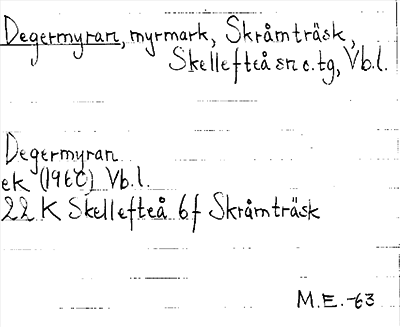 Degermyran, myrmark, Skråmträsk,
Skellefteå sn o. tg, Vb.l.
Degermyran
ek (1960) Vb.l.
22 K Skellefteå 6f Skråmträsk
M.E. -63